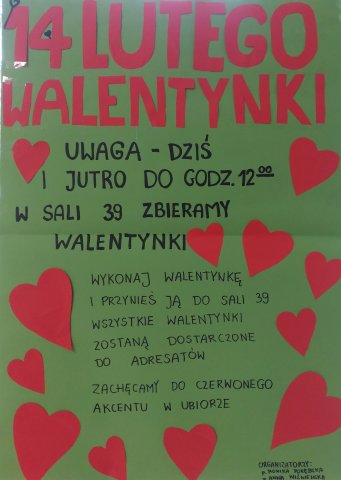 14 LUTEGO
WALENTYNKI
UWAGA - DZIŚ
I JUTRO DO GODZ. 12⁰⁰
W SALI 39 ZBIERAMY
WALENTYNKI
WYKONAJ WALENTYNKĘ
I PRZYNIEŚ JĄ DO SALI 39
WSZYSTKIE WALENTYNKI
ZOSTANĄ DOSTARCZONE
DO ADRESATÓW
ZACHĘCAMY DO CZERWONEGO
AKCENTU W UBIORZE
ORGANIZATORZY:
MONIKA
ANNA WIŚNIEWSKA